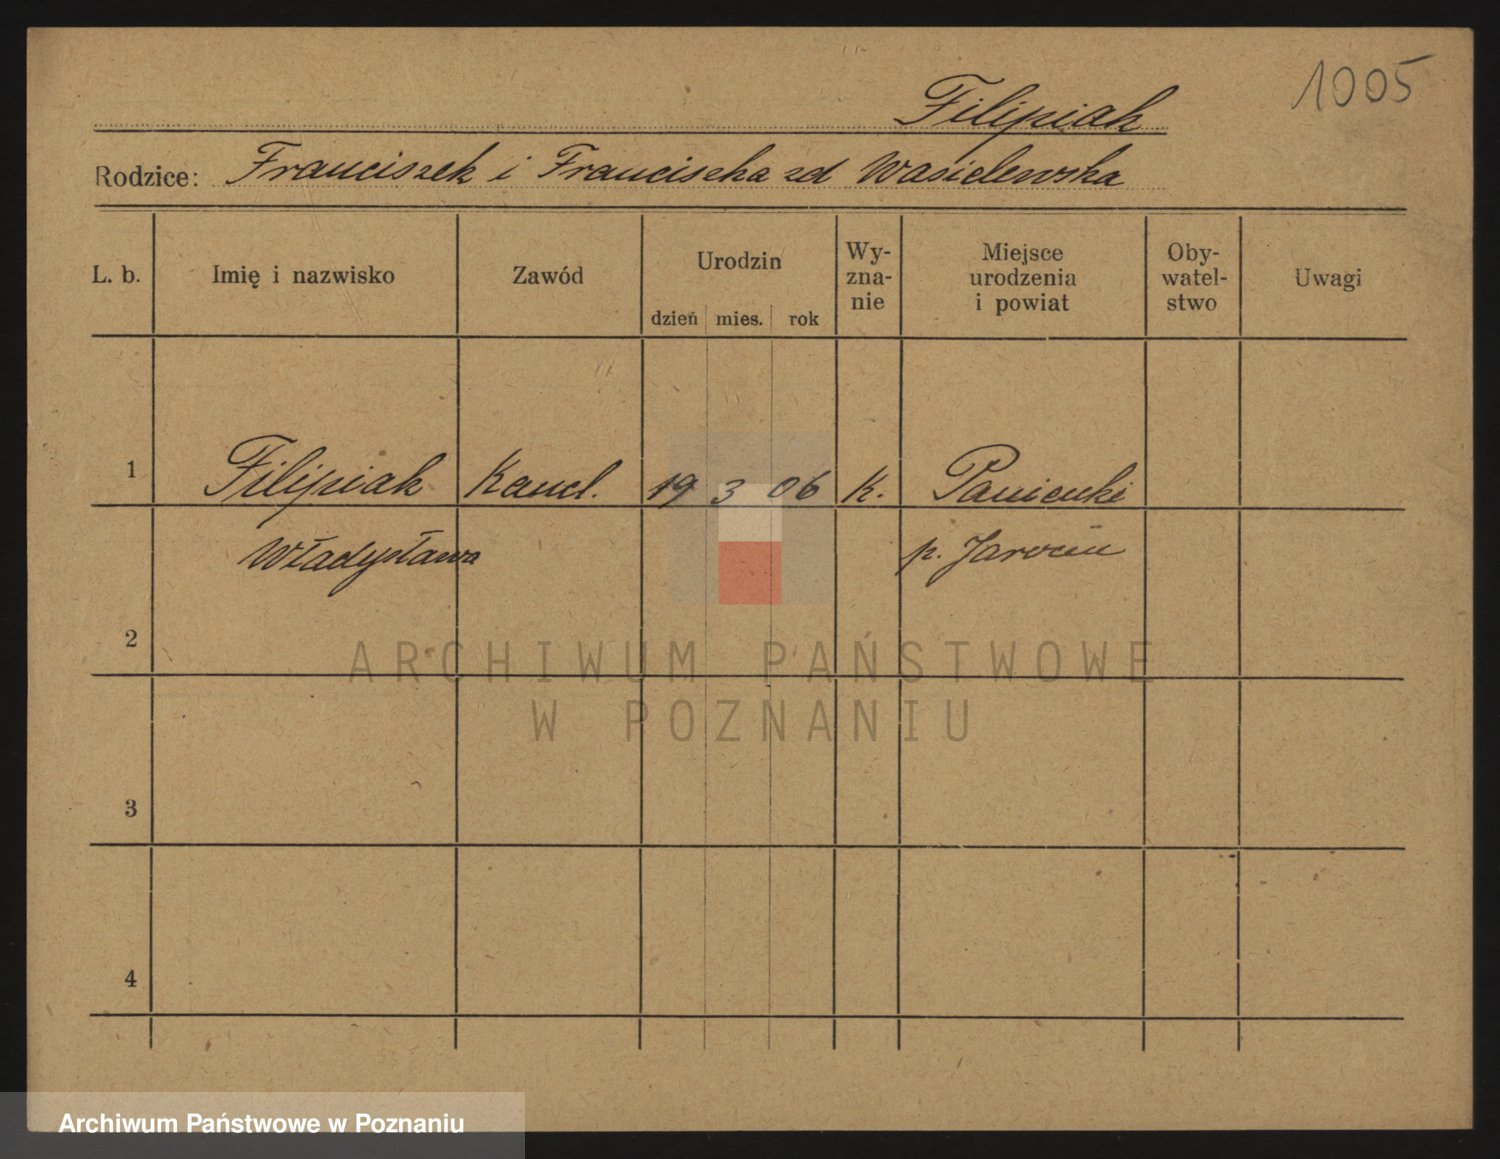 1005
Filipiak
Rodzice: Franciszek i Franciszka zd Wasielewska
L. b. Imię i nazwisko Zawód Urodzin dzień mies. rok Wy-zna-nie Miejsce urodzenia i powiat Oby-watel-stwo Uwagi
1 Filipiak Kancl. 19 3 06 k. Panienki
Władysława p. Jarocin
2
ARCHIWUM PAŃSTWOWE
W POZNANIU
3
4
Archiwum Państwowe w Poznaniu